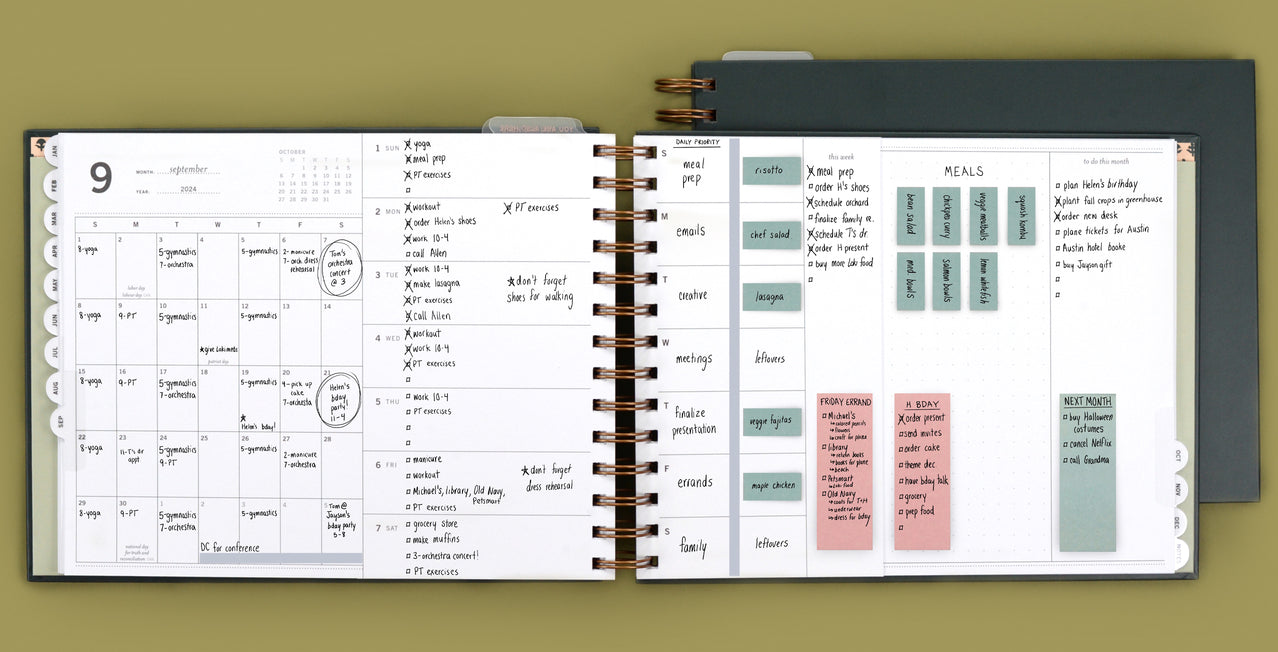 JAN
FEB
MAR
APR
MAY
JUN
JUL
AUG
SEP
9
MONTH: september
YEAR: 2024
OCTOBER
S M T W T F S
1 2 3 4 5
6 7 8 9 10 11 12
13 14 15 16 17 18 19
20 21 22 23 24 25 26
27 28 29 30 31
S M T W T F S
1
8-yoga
2
labor day
labour day
3
5-gymnastics
7-orchestra
4
5
5-gymnastics
6
2-manicure
7-orch dress
rehearsal
7
Tom's
orchestra
concert
@ 3
8
8-yoga
9
9-PT
10
5-gymnastics
11
★give Loki meds
patriot day
12
5-gymnastics
13
14
15
8-yoga
16
9-PT
17
5-gymnastics
7-orchestra
18
19
5-gymnastics
★
Helen's bday!
20
4-pick up
cake
7-orchestra
21
Helen's
bday
party!
11-4
22
8-yoga
23
11-T's dr
appt
24
5-gymnastics
9-PT
25
26
5-gymnastics
27
2-manicure
7-orchestra
28
29
8-yoga
30
9-PT
national day
for truth and
reconciliation
1
5-gymnastics
7-orchestra
2
3
5-gymnastics
4
5
Tom @
Jayson's
bday party
5-8
DC for conference
1 SUN
yoga
meal prep
PT exercises
2 MON
workout
order Helen's shoes
work 10-4
call Allen
PT exercises
3 TUE
work 10-4
make lasagna
PT exercises
call Allen
★don't forget
shoes for walking
4 WED
workout
work 10-4
PT exercises
5 THU
work 10-4
PT exercises
6 FRI
manicure
workout
Michael's, library, Old Navy,
Petsmart
PT exercises
★don't forget
dress rehearsal
7 SAT
grocery store
make muffins
3-orchestra concert!
PT exercises
DAILY PRIORITY
S
meal
prep
risotto
M
emails
chef salad
T
creative
lasagna
W
meetings
leftovers
T
finalize
presentation
veggie fajitas
F
errands
maple chicken
S
family
leftovers
this week
meal prep
order H's shoes
schedule orchard
finalize family re.
schedule T's dr
order H present
buy more Loki food
FRIDAY ERRAND
Michael's
colored pencils
flowers
craft for plane
library
return books
books for plane
beach
Petsmart
Loki food
Old Navy
coats for T+H
underwear
dress for bday
MEALS
bean salad
chickpea curry
veggie meatballs
squash kombu
med bowls
salmon bowls
lemon whitefish
H BDAY
order present
send invites
order cake
theme dec
have bday talk
grocery
prep food
to do this month
plan Helen's birthday
plant fall crops in greenhouse
order new desk
plane tickets for Austin
Austin hotel booke
buy Jayson gift
NEXT MONTH
buy Halloween
costumes
cancel Netflix
call Grandma
OCT
NOV
DEC
NOTES